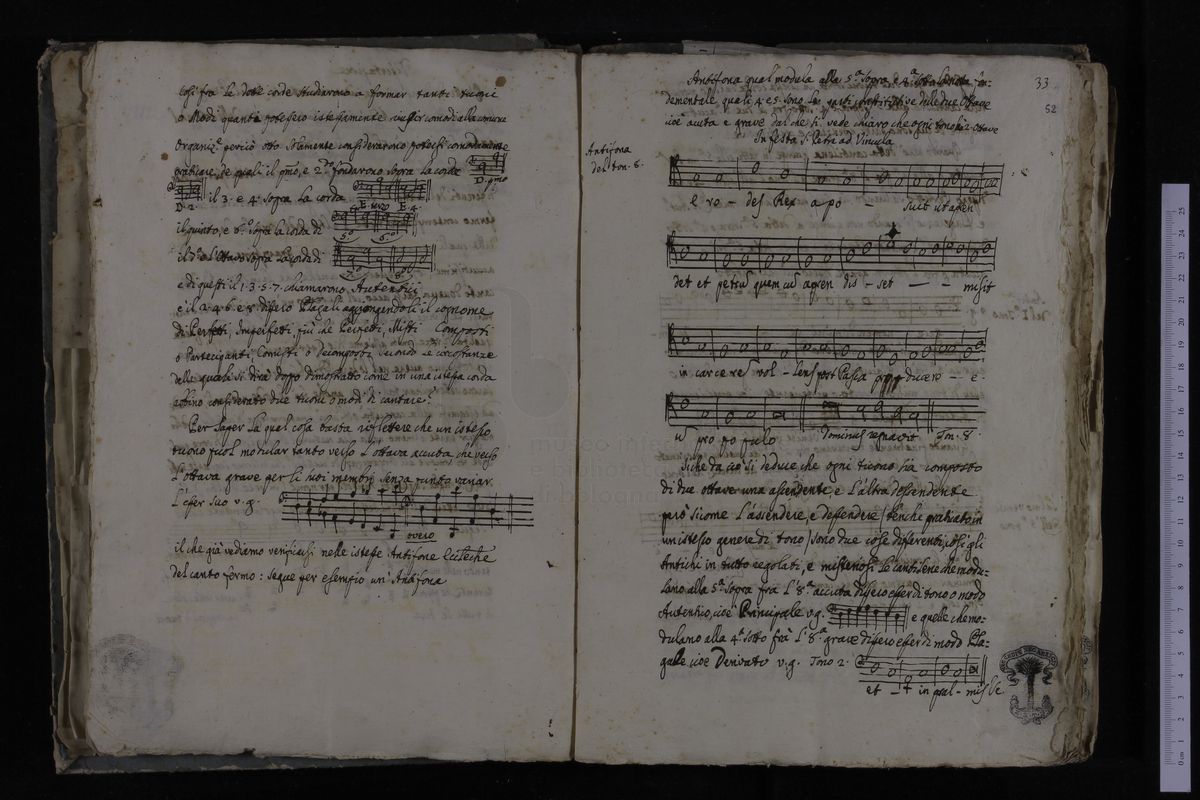 così fra le dette corde studiarono a formar tanti tuoni
o Modi quanti potessero istessamente comodi alla
Organiz.e perciò otto solamente considerarono potersi comodamente
praticare, de quali il pmo e 2.do fondarono sopra la corda
D. pmo
D. 2. il 3. e 4. sopra la corda E. E. 4.
il quinto, e 6. sopra la corda di
5.o 6.o
il 7.o e l'ottavo sopra la corda di
7.o 8.o
e di questi il 1. 3. 5. 7. chiamarono Autentici
e il 2. 4. 6. e 8. dissero Plagali aggiongendoli il cognome
di Perfetti, Imperfetti, più che Perfetti, Misti Composti
o Parteciganti, Comisti o decomposti secondo le circostanze
delle quali si dirà doppo dimostratto come in una istessa corda
abbino considerato due tuoni o modi di cantare.
Per saper la qual cosa basta riflettere che un istesso
tuono puol modular tanto verso l'ottava accuta, che verso
l'ottava grave per li suoi membri senza punto variar
l'esser suo v. g.
overo
il che già vediamo verificarsi nelle istesse Antifone Eccl.che
del canto fermo: segue per esempio un'Antifona
33
52
Antifona qual modula alla 5.a sopra, e 4.a sotto la nota fon-
damentale, quali 4. e 5. sono le parti constitutive delle due Ottave
cioè acuta e grave dal che si vede chiaro che ogni tono ha 2. Ottave
In festo S. Petri ad Vincula
Antifona
del ton. 8.
E ro - des Rex a po suit ut apren
det et petrum quem cum apren dis - set - - misit
in carcerem vol - lens post Pasca producere - e -
um pro po pulo Dominus regnavit Ton. 8.
Siche da ciò si deduce che ogni tuono ha composto
di due ottave una ascendente, e l'altra dessendente
però sicome l'assendere, e dessendere / benche praticato in
un istesso genere di tono / sono due cose differenti, così gli
Antichi in tutto regolati, e misteriosi le cantilene che modu-
lano alla 5.a sopra fra l'8.a accuta dissero esser di tono o modo
Autentico, cioè Principale v. g. e quelle che mo-
dulano alla 4.a sotto frà l'8.a grave dissero esser di modo Pla-
gale cioè Derivato v. g. Tono 2.
et - + in psal - misse